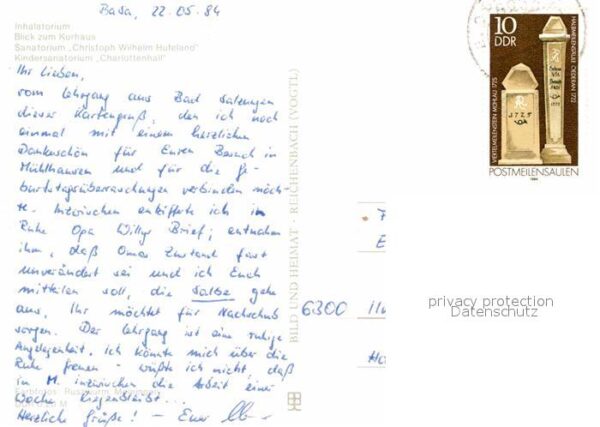 BaSa, 22.05.84
Inhalatorium
Blick zum Kurhaus
Sanatorium „Christoph Wilhelm Hufeland"
Kindersanatorium „Charlottenhall"
Ihr Lieben,
vom Lehrgang aus Bad Salzungen
dieser Kartengruß, den ich noch
einmal mit einem herzlichen
Dankeschön für Euren Besuch in
Mühlhausen und für die Ge-
burtstagsüberraschungen verbinden möch-
te. Inzwischen entziffere ich in
Ruhe Opa Willys Brief; entnahm
ihm, daß Omas Zustand fast
unverändert sei und ich Euch
mitteilen soll, die Salbe gehe
aus, Ihr möchtet für Nachschub
sorgen. Der Lehrgang ist eine ruhige
Angelegenheit, ich könnte mich über die
Ruhe freuen - wüßte ich nicht, daß
in M. inzwischen die Arbeit einer
Woche liegenbleibt...
Herzliche Grüße! - Euer
BILD UND HEIMAT · REICHENBACH (VOGTL)
10
DDR
VIERTELMEILENSTEIN MÜHLAU 1725
HALBMEILENSÄULE OEDERAN 1722
POSTMEILENSÄULEN
1984
6300
privacy protection
Datenschutz